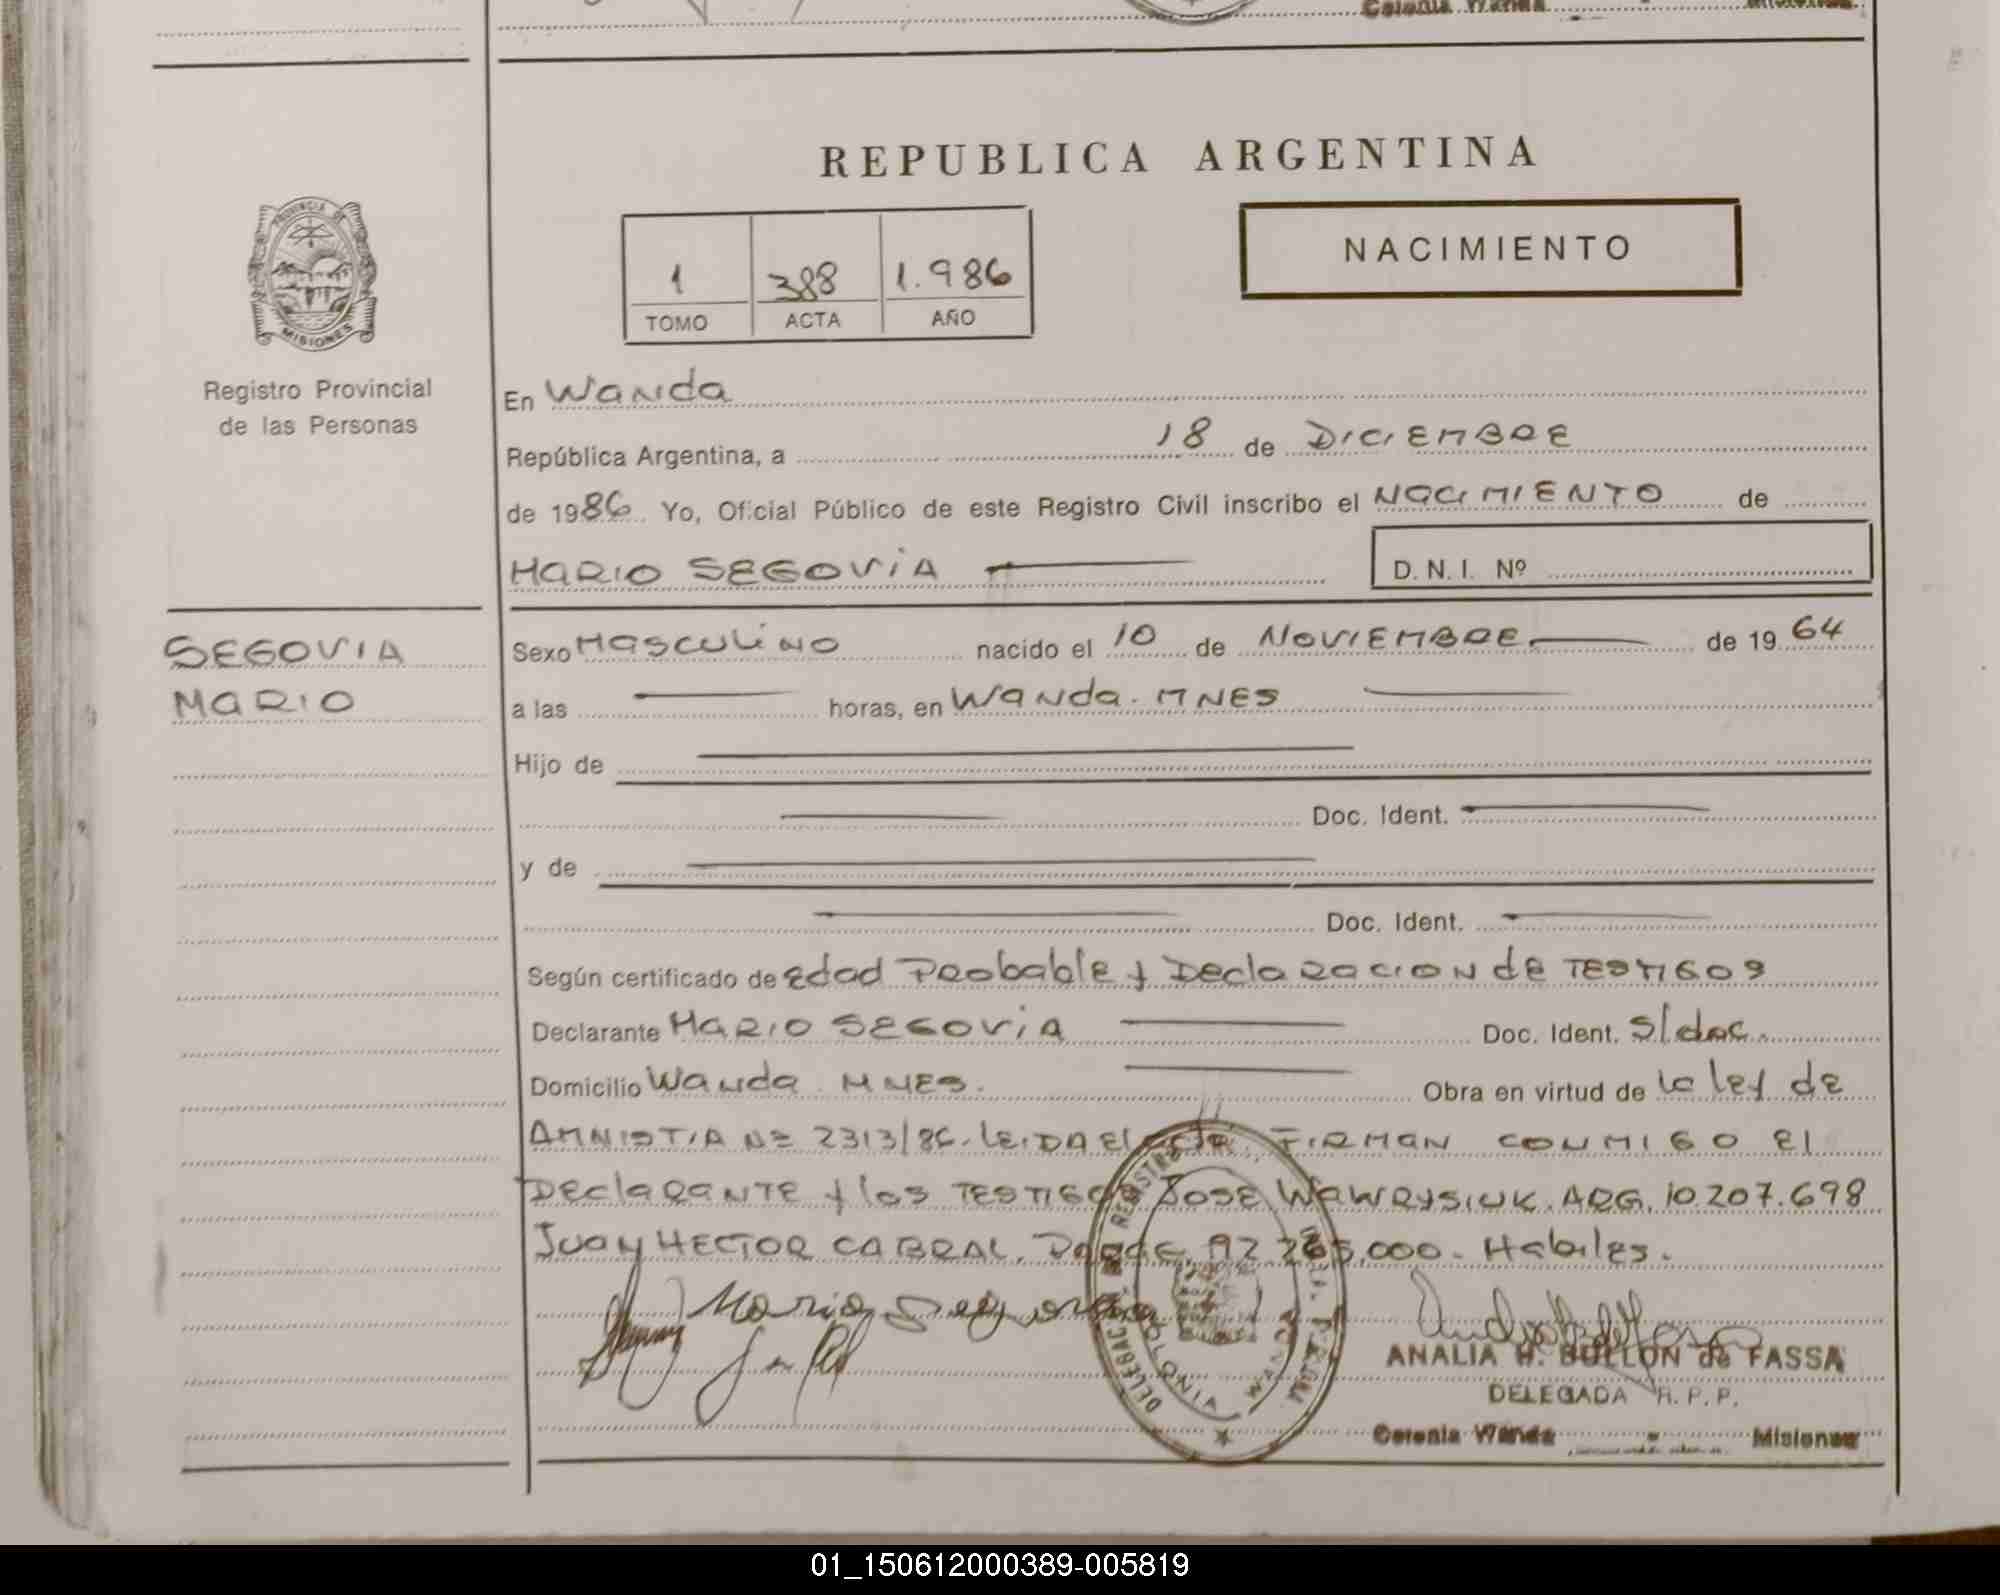 Colonia Wanda Misiones
REPUBLICA ARGENTINA
PROVINCIA DE
MISIONES
Registro Provincial
de las Personas
1 388 1.986
TOMO ACTA AÑO
NACIMIENTO
En Wanda
República Argentina, a 18 de DICIEMBRE
de 1986. Yo, Oficial Público de este Registro Civil inscribo el NACIMIENTO de
MARIO SEGOVIA
D. N. I. Nº
SEGOVIA
MARIO
Sexo MASCULINO nacido el 10 de NOVIEMBRE de 1964
a las horas, en Wanda. MNES
Hijo de
Doc. Ident.
y de
Doc. Ident.
Según certificado de edad Probable y Declaracion de TESTIGOS
Declarante MARIO SEGOVIA Doc. Ident. S/doc.
Domicilio Wanda MNES. Obra en virtud de la ley de
AMNISTIA Nº 2313/86. LEIDA El acta, FIRMAN CONMIGO El
DEClARANTE y los TESTIGOS JOSE WAWRYSIUK. ARG. 10.207.698
JUAN HECTOR CABRAL, 92 265.000. Habiles.
Mario Segovia
DELEGACION REGISTRO
COLONIA WANDA
ANALIA H. BULLON de FASSA
DELEGADA R. P. P.
Colonia Wanda Misiones
01_150612000389-005819